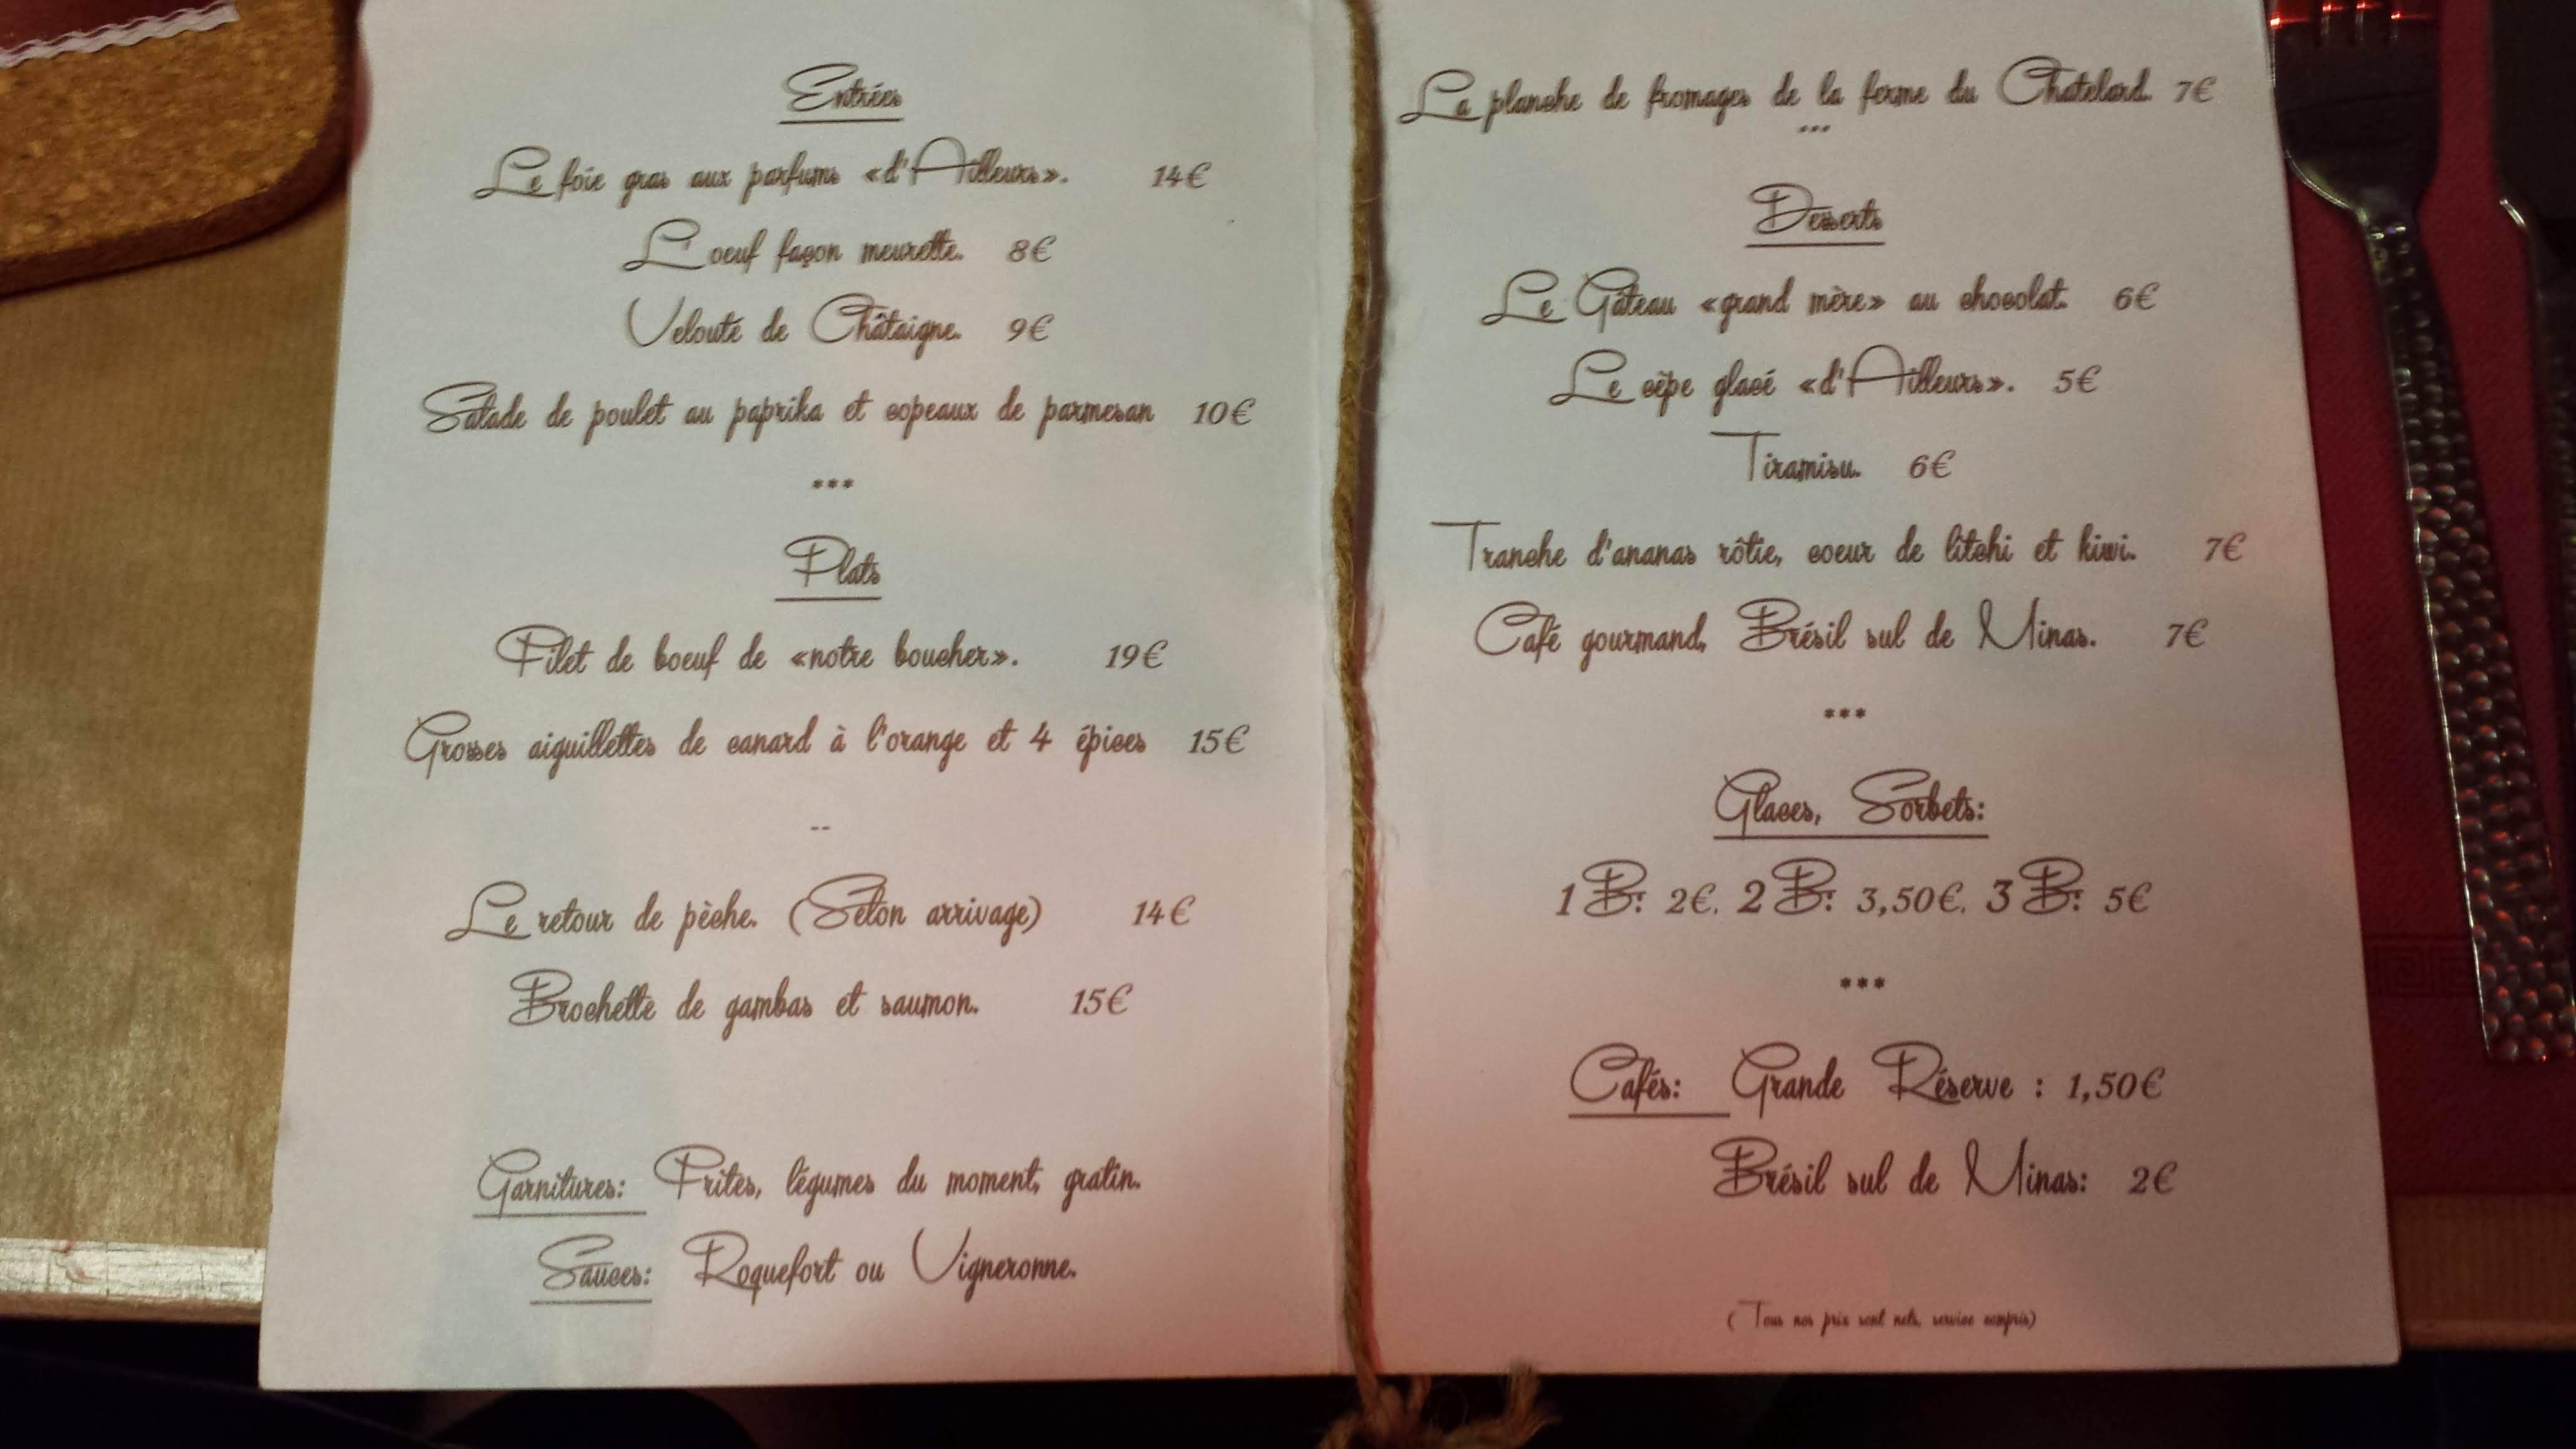 Entrées
Le foie gras aux parfums «d'Ailleurs». 14€
L'oeuf façon meurette. 8€
Velouté de Châtaigne. 9€
Salade de poulet au paprika et copeaux de parmesan 10€
***
Plats
Filet de boeuf de «notre boucher». 19€
Grosses aiguillettes de canard à l'orange et 4 épices 15€
--
Le retour de pèche. (Selon arrivage) 14€
Brochette de gambas et saumon. 15€
Garnitures: Frites, légumes du moment, gratin.
Sauces: Roquefort ou Vigneronne.
La planche de fromages de la ferme du Chatelard. 7€
***
Desserts
Le Gâteau «grand mère» au chocolat. 6€
Le cèpe glacé «d'Ailleurs». 5€
Tiramisu. 6€
Tranche d'ananas rôtie, coeur de litchi et kiwi. 7€
Café gourmand, Brésil sul de Minas. 7€
***
Glaces, Sorbets:
1 B: 2€. 2 B: 3,50€. 3 B: 5€
***
Cafés: Grande Réserve : 1,50€
Brésil sul de Minas: 2€
(Tous nos prix sont nets, service compris)